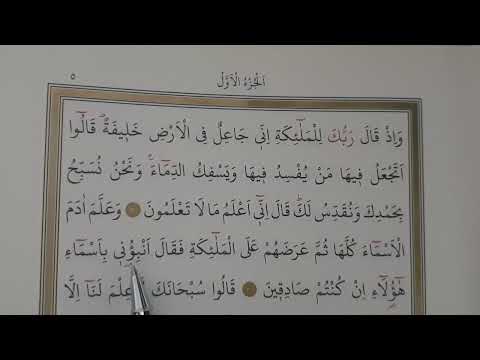 اَلْجُزْءُ الْاَوَّلُ
٥
وَاِذْ قَالَ رَبُّكَ لِلْمَلٰٓئِكَةِ اِنّ۪ي جَاعِلٌ فِي الْاَرْضِ خَل۪يفَةًۜ قَالُٓوا
اَتَجْعَلُ ف۪يهَا مَنْ يُفْسِدُ ف۪يهَا وَيَسْفِكُ الدِّمَٓاءَۚ وَنَحْنُ نُسَبِّحُ
بِحَمْدِكَ وَنُقَدِّسُ لَكَۜ قَالَ اِنّ۪ٓي اَعْلَمُ مَا لَا تَعْلَمُونَ وَعَلَّمَ اٰدَمَ
الْاَسْمَٓاءَ كُلَّهَا ثُمَّ عَرَضَهُمْ عَلَى الْمَلٰٓئِكَةِ فَقَالَ اَنْبِؤُ۫ن۪ي بِاَسْمَٓاءِ
هٰٓؤُ۬لَٓاءِ اِنْ كُنْتُمْ صَادِق۪ينَ قَالُوا سُبْحَانَكَ عِلْمَ لَنَٓا اِلَّا